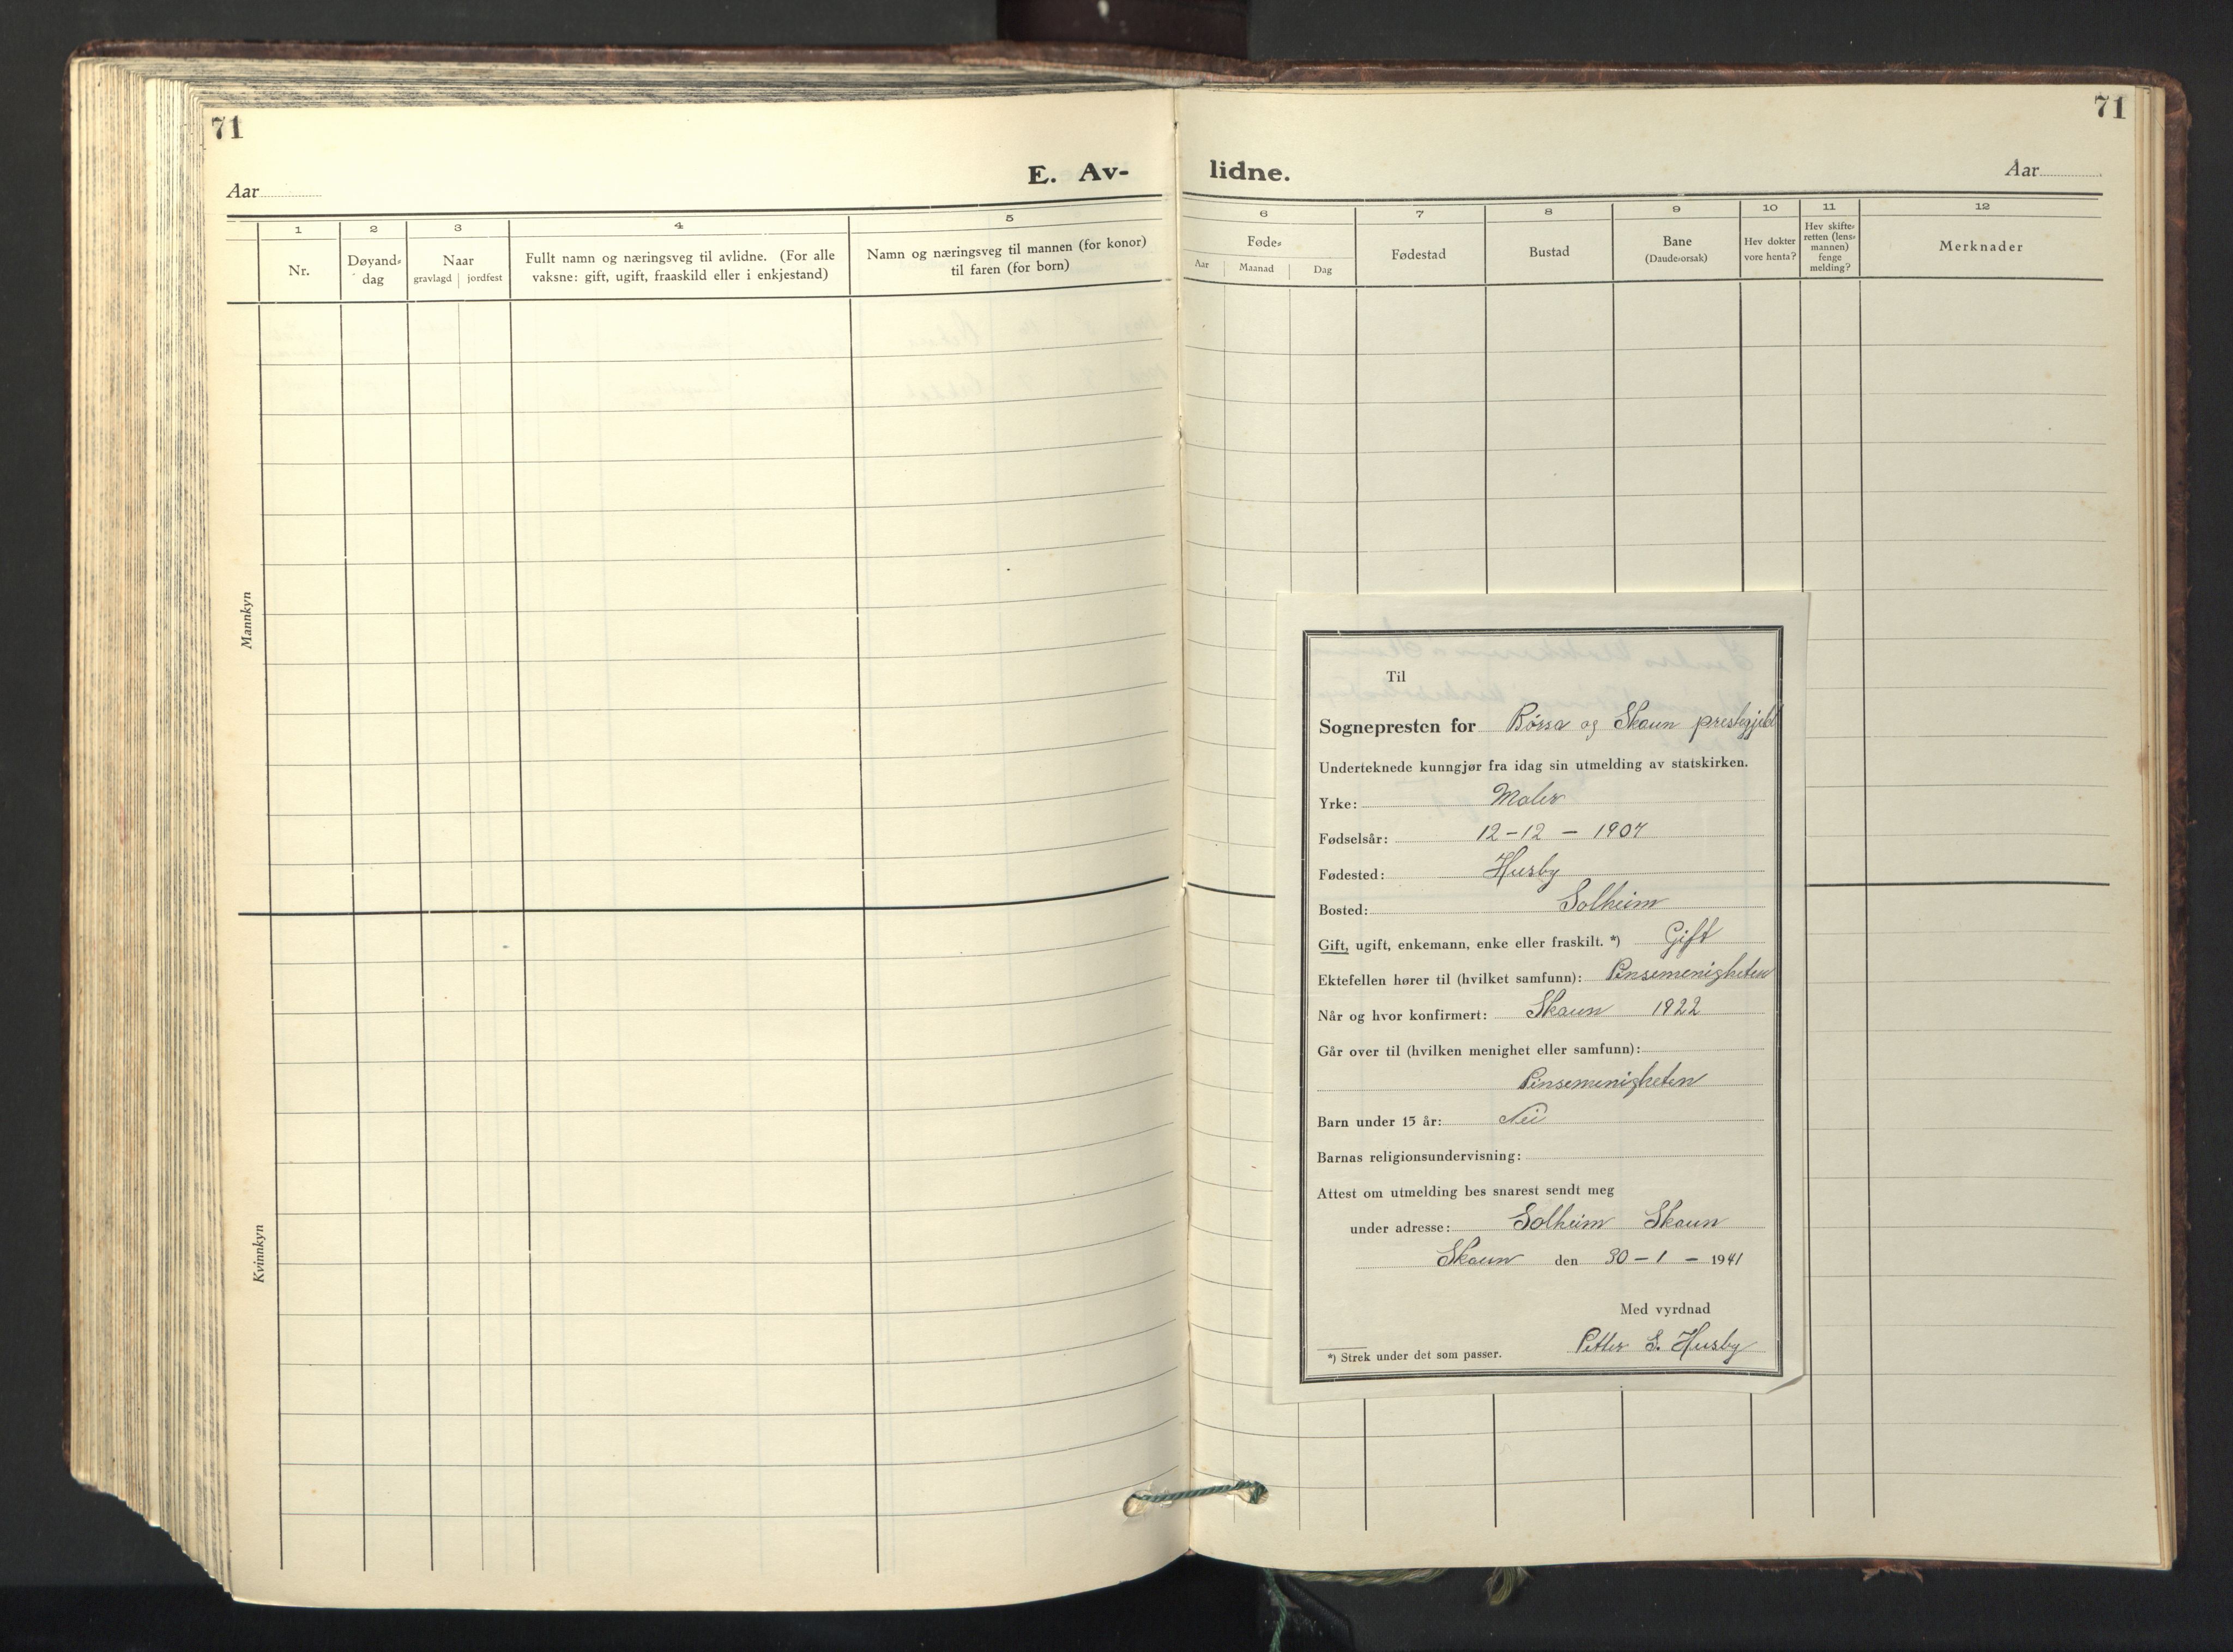 71
Aar
E. Av-
1
2
3
4
5
Nr.
Døyand-
dag
Naar
gravlagd
jordfest
Fullt namn og næringsveg til avlidne. (For alle
vaksne: gift, ugift, fraaskild eller i enkjestand)
Namn og næringsveg til mannen (for konor)
til faren (for born)
Mannkyn
Kvinnkyn
71
lidne.
Aar
6
7
8
9
10
11
12
Føde-
Aar
Maanad
Dag
Fødestad
Bustad
Bane
(Daude-orsak)
Hev dokter
vore henta?
Hev skifte-
retten (lens-
mannen)
fenge
melding?
Merknader
Til
Sognepresten for Børsa og Skaun prestegjeld
Underteknede kunngjør fra idag sin utmelding av statskirken.
Yrke: Maler
Fødselsår: 12-12 - 1907
Fødested: Husby
Bosted: Solheim
Gift, ugift, enkemann, enke eller fraskilt. *) Gift
Ektefellen hører til (hvilket samfunn): Pinsemenigheten
Når og hvor konfirmert: Skaun 1922
Går over til (hvilken menighet eller samfunn):
Pinsemenigheten
Barn under 15 år: Nei
Barnas religionsundervisning:
Attest om utmelding bes snarest sendt meg
under adresse: Solheim Skaun
Skaun den 30 - 1 - 1941
Med vyrdnad
Petter S. Husby
*) Strek under det som passer.